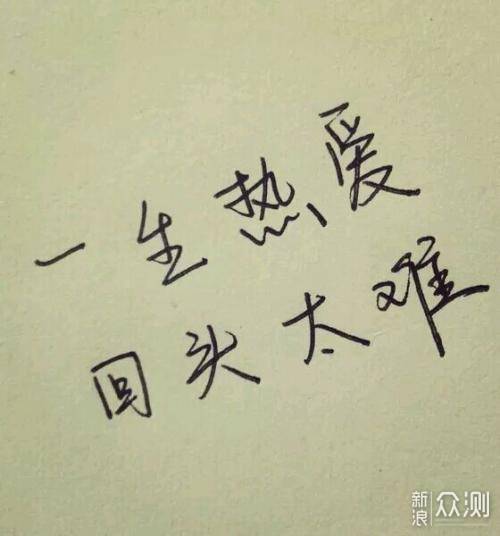 一生热爱
回头太难
新浪众测